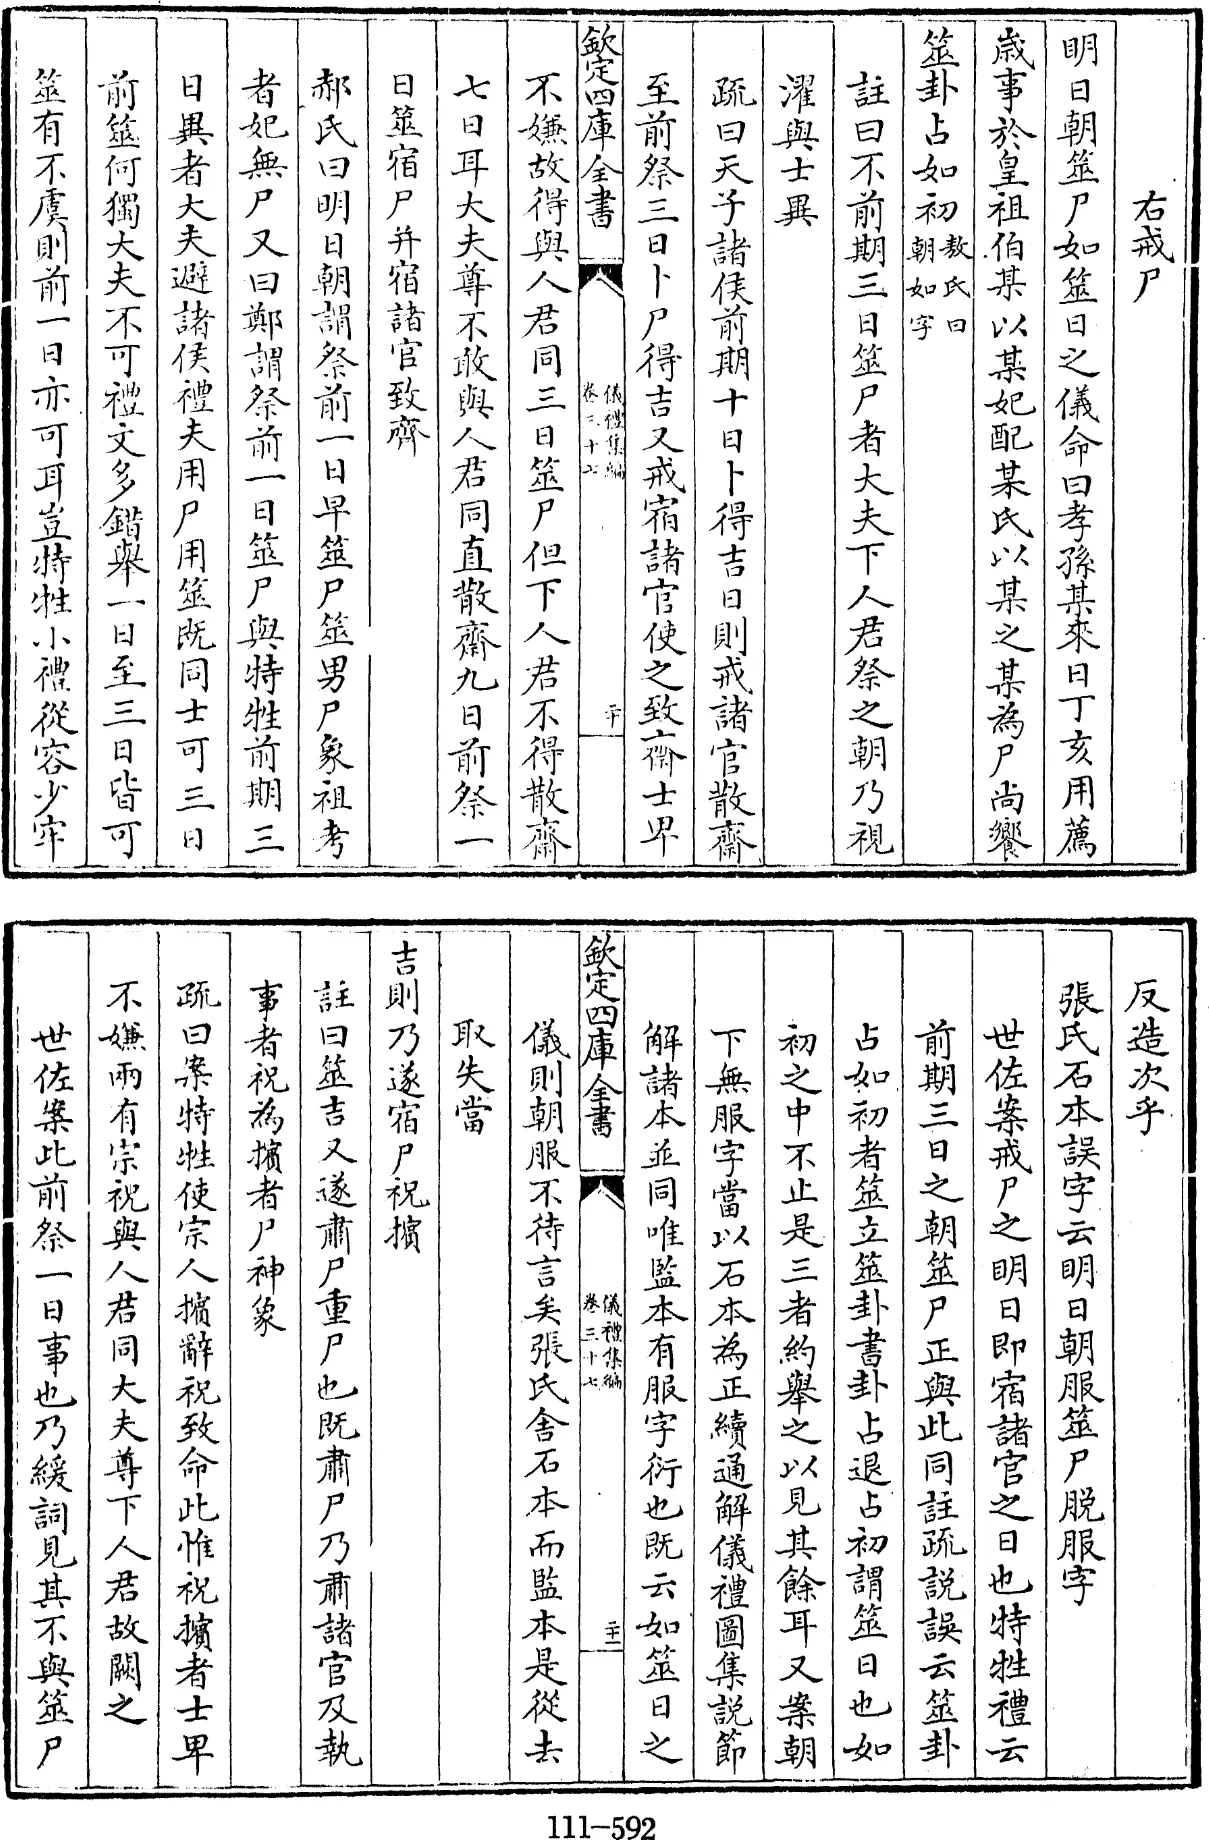 右戒尸
明日朝筮尸如筮日之儀命曰孝孫某來日丁亥用薦
歲事於皇祖伯某以某妃配某氏以某之某為尸尚饗
筮卦占如初敖氏曰朝如字
註曰不前期三日筮尸者大夫下人君祭之朝乃視
濯與士異
疏曰天子諸侯前期十日卜得吉日則戒諸官散齋
至前祭三日卜尸得吉又戒宿諸官使之致齋士卑
欽定四庫全書
儀禮集編
卷三十七
二十
不嫌故得與人君同三日筮尸但下人君不得散齋
七日耳大夫尊不敢與人君同直散齋九日前祭一
日筮宿尸并宿諸官致齊
郝氏曰明日朝謂祭前一日早筮尸筮男尸象祖考
者妃無尸又曰鄭謂祭前一日筮尸與特牲前期三
日異者大夫避諸侯禮夫用尸用筮既同士可三日
前筮何獨大夫不可禮文多錯舉一日至三日皆可
筮有不虞則前一日亦可耳豈特牲小禮從容少牢
反造次乎
張氏石本誤字云明日朝服筮尸脫服字
世佐案戒尸之明日即宿諸官之日也特牲禮云
前期三日之朝筮尸正與此同註疏説誤云筮卦
占如初者筮立筮卦書卦占退占初謂筮日也如
初之中不止是三者約舉之以見其餘耳又案朝
下無服字當以石本為正續通解儀禮圖集説節
解諸本並同唯監本有服字衍也既云如筮日之
欽定四庫全書
儀禮集編
卷三十七
二十一
儀則朝服不待言矣張氏舍石本而監本是從去
取失當
吉則乃遂宿尸祝擯
註曰筮吉又遂肅尸重尸也既肅尸乃肅諸官及執
事者祝為擯者尸神象
疏曰案特牲使宗人擯辭祝致命此惟祝擯者士卑
不嫌兩有宗祝與人君同大夫尊下人君故闕之
世佐案此前祭一日事也乃緩詞見其不與筮尸
111-592